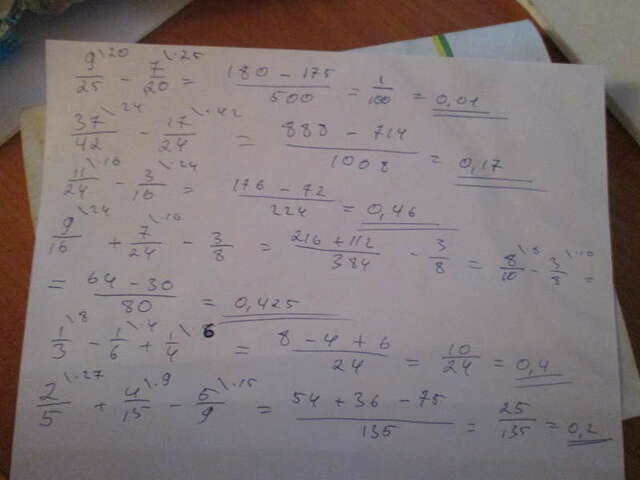 9/25 \20 - 7/20 \·25 = (180 - 175)/500 = 1/100 = 0,01
37/42 \24 - 17/24 \·42 = (888 - 714)/1008 = 0,17
11/24 \·16 - 3/16 \·24 = (176 - 72)/224 = 0,46
9/16 \·24 + 7/24 \·16 - 3/8 = (216 + 112)/384 - 3/8 = 8/10 \·8 - 3/8 \·10 =
= (64 - 30)/80 = 0,425
1/3 \8 - 1/6 \·4 + 1/4 \6 = (8 - 4 + 6)/24 = 10/24 = 0,4
2/5 \·27 + 4/15 \·9 - 5/9 \·15 = (54 + 36 - 75)/135 = 25/135 = 0,2